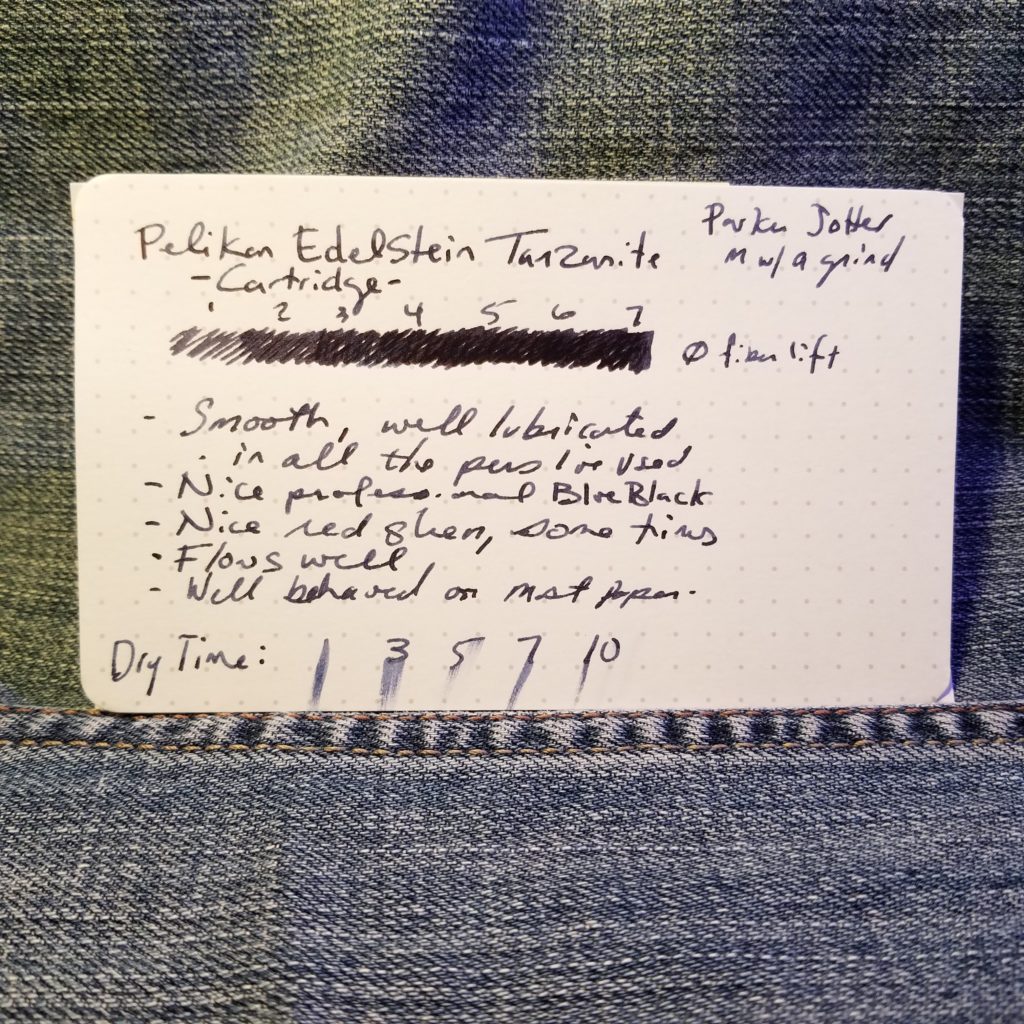 Pelikan Edelstein Tanzanite
-Cartridge-
Parker Jotter
M w/ a grind
1 2 3 4 5 6 7
Ø fiber lift
- Smooth, well lubricated
. in all the pens I've used
- Nice professional Blue Black
- Nice red sheen, some times
- Flows well
- Well behaved on most paper.
Dry Time: 1 3 5 7 10